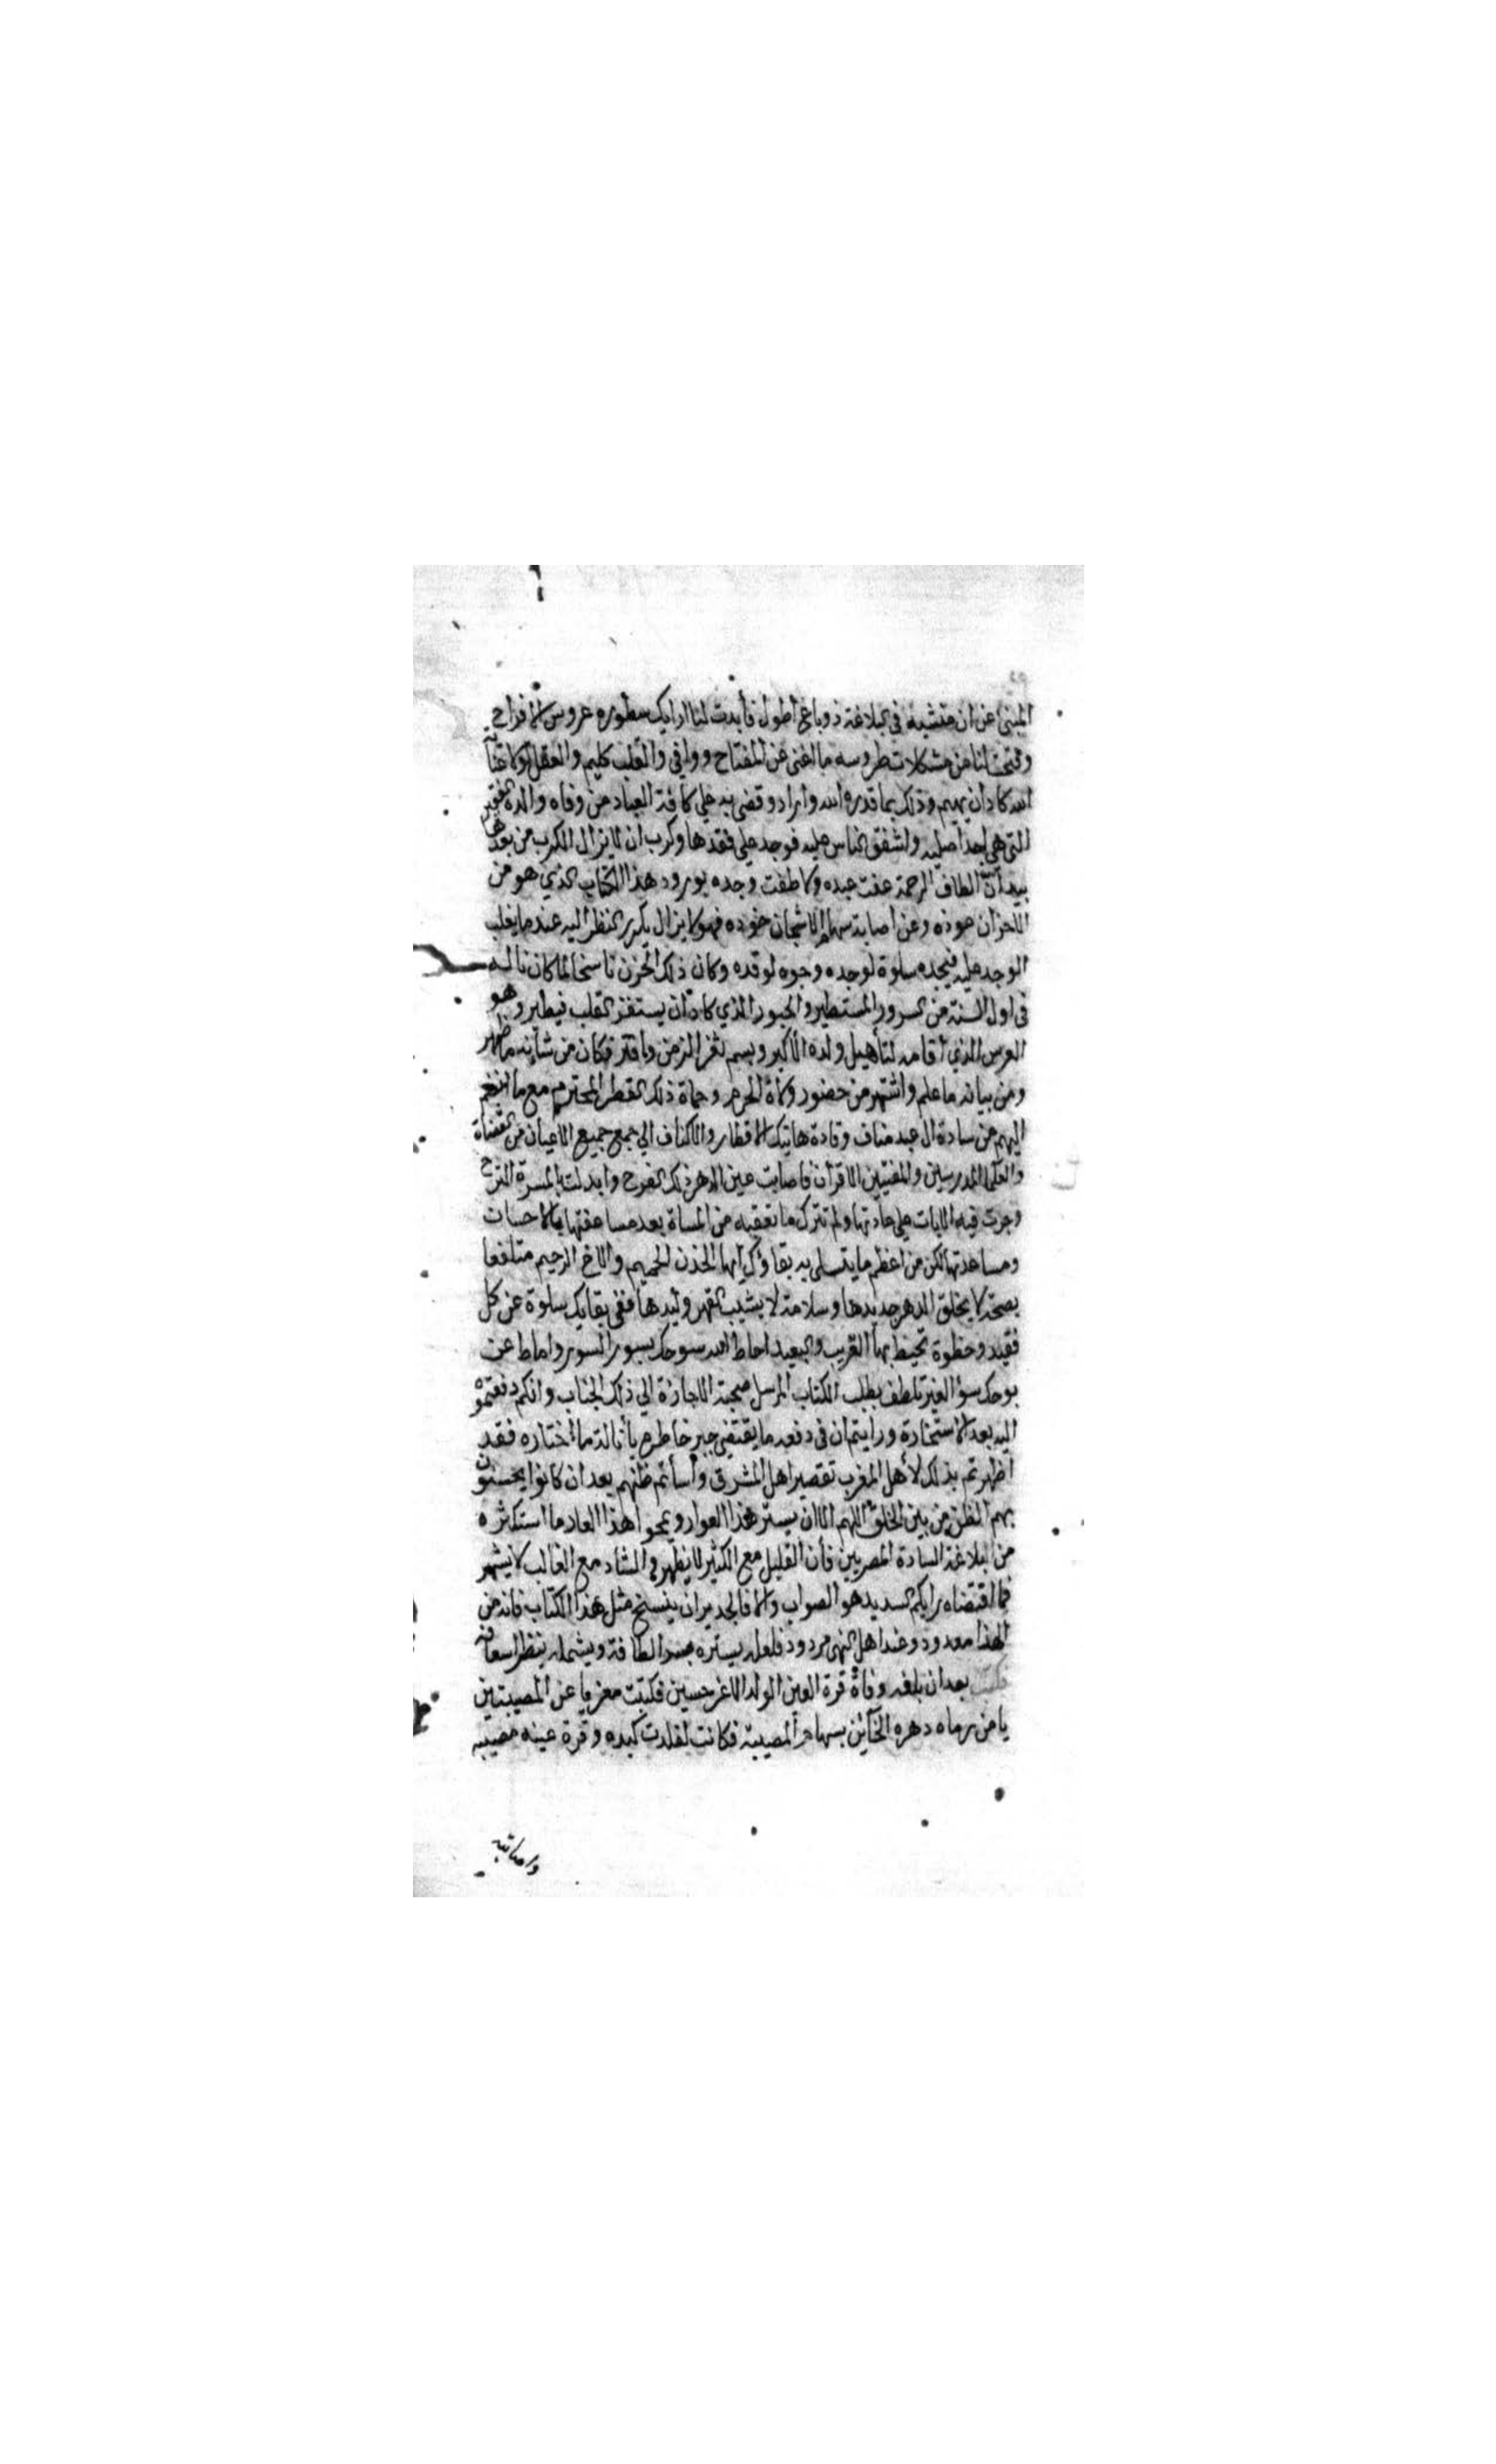 المبنى عن ان منشيه في البلاغة ذو باع أطول فأبدت لنا ارايك سطوره عروس الافراح
وفتحت لنا من مشكلات طروسه ما اغنى عن المفتاح ووافى والقلب كليم والعقل لولا عناية
الله كاد أن يهيم وذلك بما قدره الله وأراد وقضى به على كافة العباد من وفاه والدة الفقير
التي هي احد اصليه واشفق الناس عليه فوجد على فقدها وكرب ان لا يزال الكرب من بعدها
بيد أنّ الطاف الرحمة عفت عبده ولاطفت وجده بورود هذا الكتاب الذي هو من
الاحزان عوذه وعن اصابة سهام الاشجان خوده فهو لا يزال يكرر النظر اليه عندما يغلب
الوجد عليه فيجده سلوة لوجده وجوه لوقده وكان ذلك الحزن ناسخا لما كان ناله
في اول السنة من السرور المستطير والحبور الذي كاد أن يستفز القلب فيطير وهو
العرس الذي أقامه لتأهيل ولده الأكبر وبسم ثغر الزمن وافتر فكان من شأنه ما ظهر
ومن بيانه ما علم واشتهر من حضور ولاة الحرم وحماة ذلك القطر المحترم مع ما انضم
اليهم من سادة ال عبد مناف وقادة هاتيك الاقطار والاكناف الي جمع جميع الاعيان من القضاة
والعلما المدرسين والمفتيين الاقران فاصابت عين الدهر ذلك الفرح وابدلت بالمسرة الترح
وجرت فيه الايات على عادتها ولم تترك ما تعقبه من المساة بعد مساعفتها بالاحسان
ومساعدتها لكن من اعظم ما يتسلى به بقاؤك أيها الخدن الحميم والاخ الرحيم متلفعا
بصحة لا يخلق الدهر جديدها وسلامة لا يشيب القهر وليدها ففي بقايك سلوة عن كل
فقيد وحظوة تحيط بها القريب والبعيد احاط الله سوحك بسور السور واماط عن
بوحك سؤ الغير تلطف بطلب الكتاب المرسل صحبة الاجازة الي ذلك الجناب وانكم دفعتموه
اليه بعد الاستخارة ورايتم ان في دفعه ما يقتضي جبر خاطره بأنالة ما اختاره فقد
اظهرتم بذلك لأهل المغرب تقصير اهل المشرق وأسأتم ظنهم بعد ان كانوا يحسنون
بهم الظن من بين الخلق اللهم الا ان يستر هذا العوار ويمحو اهذا العار ما استكثره
من ابلاغة السادة المصريين فأن القليل مع الكثير لا يظهر والشاد مع الغالب لا يشهر
فما اقتضاه رايكم السديد هو الصواب والا فالجدير ان ينسخ مثل هذا الكتاب فانه من
الهذا معدود وعند اهل النهى مردود فلعله يستره الطافة ويشمله بنظر اسعافه
فكتب بعد ان بلغه وفاة قرة العين الولد الاغر حسين فكتبت معزيا عن المصيبتين
يا من رماه دهره الخآئن بسهام المصيبة فكانت لفلدت كبده وقرة عينه مصيبه
واصابته